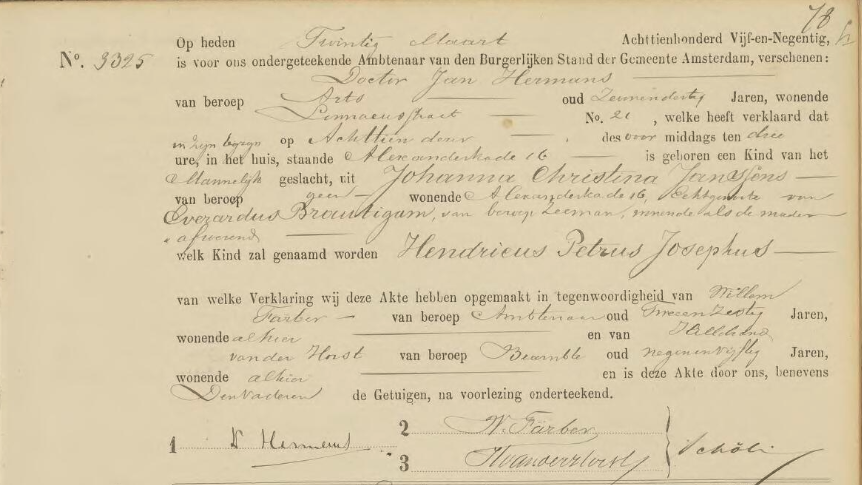 78
Op heden Twintig Maart Achttienhonderd Vijf-en-Negentig,
No. 3325 is voor ons ondergeteekende Ambtenaar van den Burgerlijken Stand der Gemeente Amsterdam, verschenen:
Doctor Jan Hermans
van beroep Arts oud Jaren, wonende
Linnaeusstraat No. 21, welke heeft verklaard dat
in zijn bijzijn op Achttien dezer des voor middags ten drie
ure, in het huis, staande Alexanderkade 16 is geboren een Kind van het
Mannelijk geslacht, uit Johanna Christina Janssens
van beroep geen wonende Alexanderkade 16, Echtgenoote van
Everardus Brautigam, van beroep Zeeman, wonende als de moeder
afwezend
welk Kind zal genaamd worden Hendricus Petrus Josephus
van welke Verklaring wij deze Akte hebben opgemaakt in tegenwoordigheid van Willem
Färber van beroep Ambtenaar oud Tweeenzestig Jaren,
wonende alhier en van
van der Horst van beroep Beambte oud negenenvijftig Jaren,
wonende alhier en is deze Akte door ons, benevens
de Getuigen, na voorlezing onderteekend.
1 Dr Hermans
2 W. Färber
3 HvanderHorst